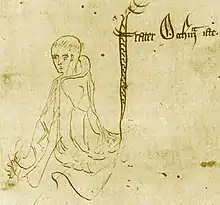 frater Occhm iste